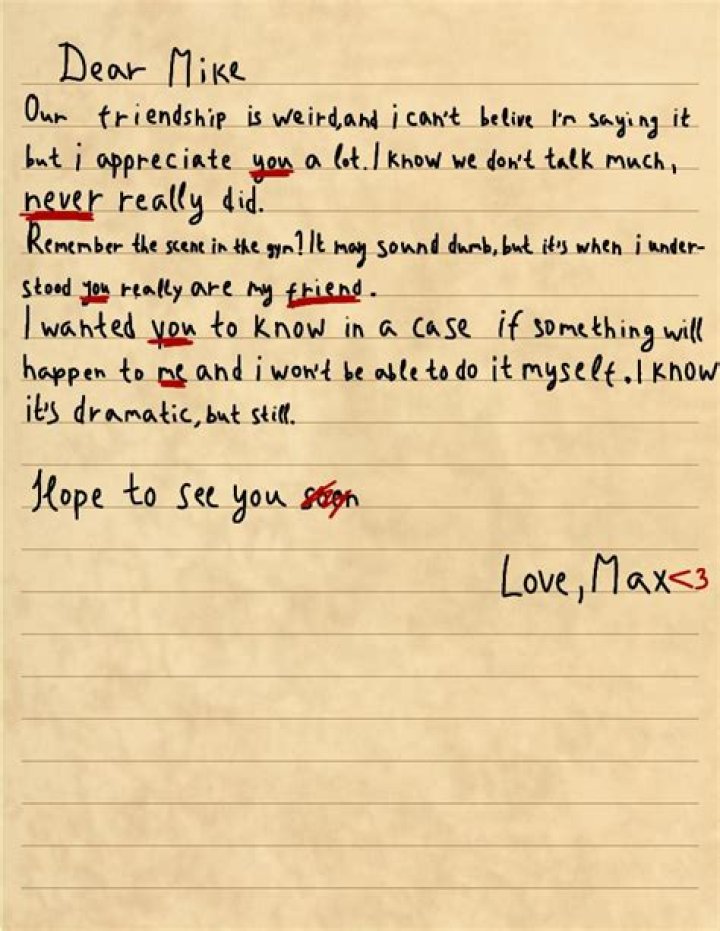 Dear Mike
Our friendship is weird,and i can't belive I'm saying it
but i appreciate you a lot. I know we don't talk much,
never really did.
Remember the scene in the gym? It may sound dumb, but it's when i under-
stood you really are my friend.
I wanted you to know in a case if something will
happen to me and i won't be able to do it myself. I know
it's dramatic, but still.
Hope to see you soon
Love, Max<3